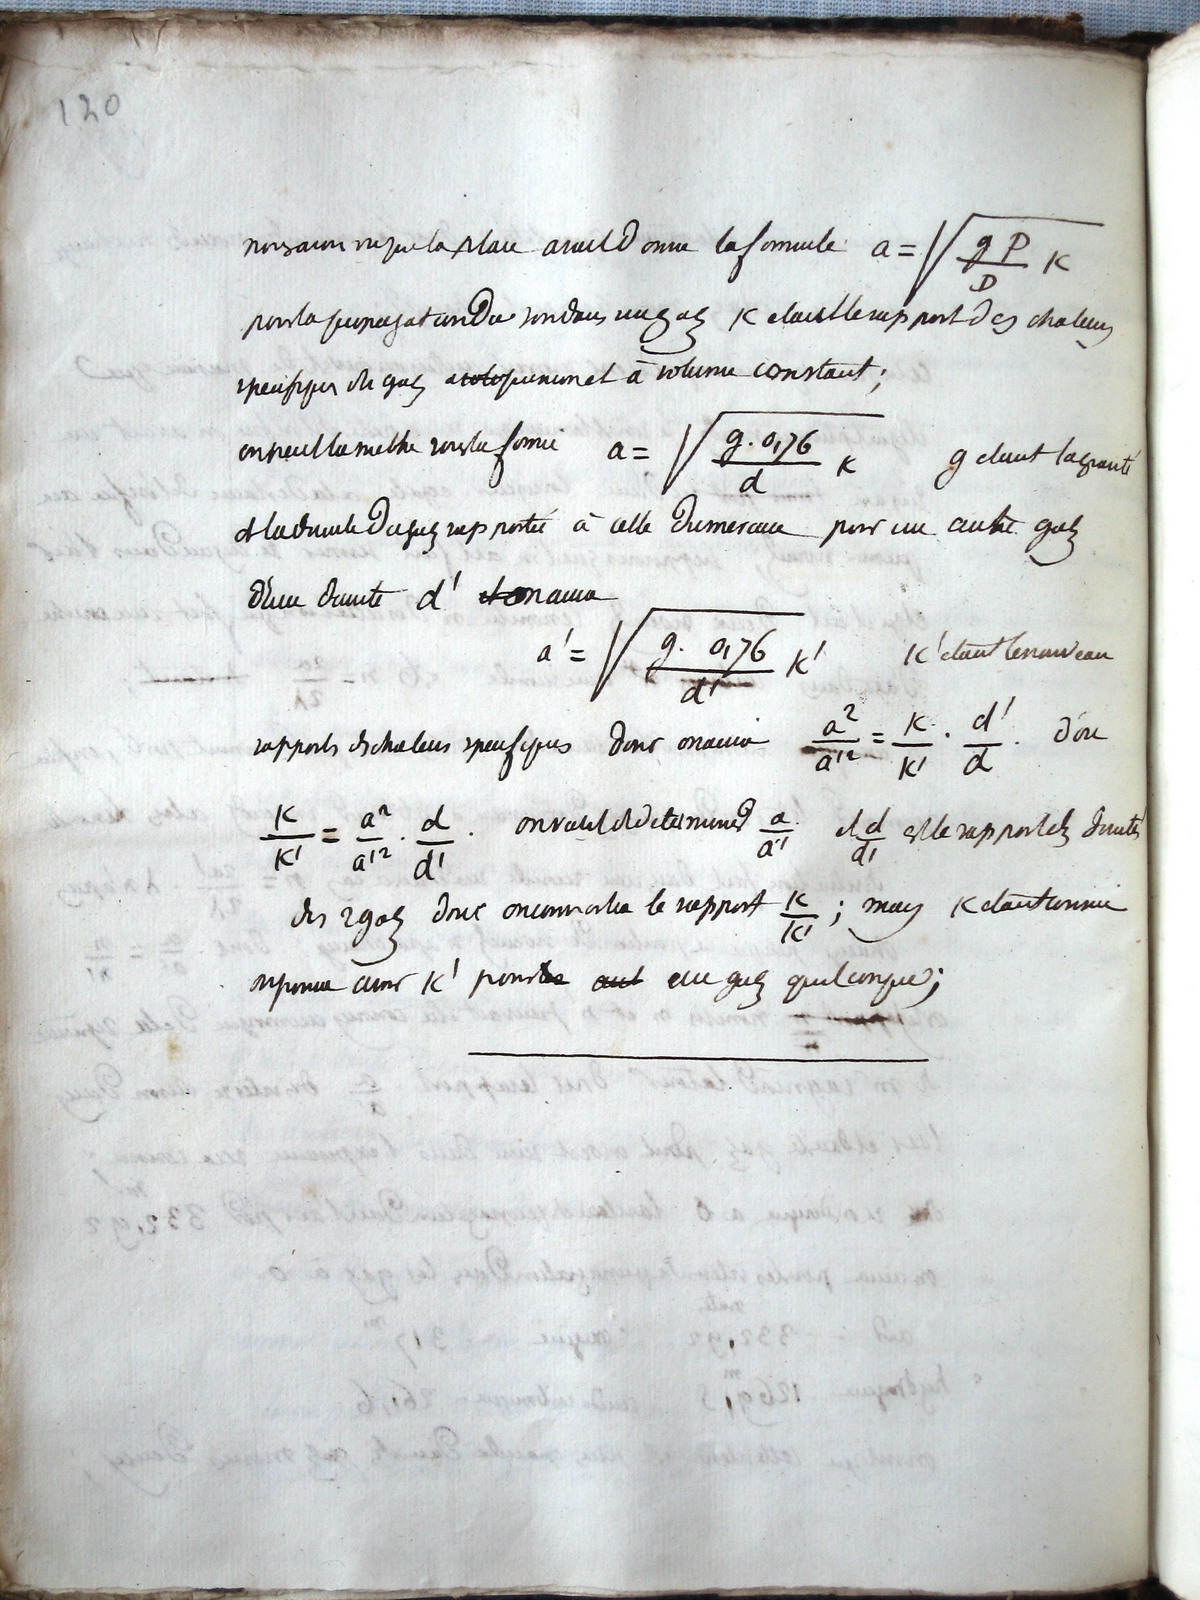 120
nous avons vu que la place avait donné la formule a = √(gP/D K)
pour la propagation du son dans un gaz K etant le rapport des chaleurs
specifiques du gaz a pression et à volume constant ;
on peut la mettre sous la forme a = √(g. 0,76/d K) g etant la gravité
d la densité du gaz rapportée à celle du mercure pour un autre gaz
d'une densité d' on aura
a' = √(g. 0,76/d' K') K' etant le nouveau
rapport des chaleurs specifiques donc on aura a²/a'² = K/K' . d'/d . d'ou
K/K' = a²/a'² . d/d' . on vient de determiner a/a' et d/d' est le rapport des densités
des 2 gaz donc on connoitra le rapport K/K' ; mais K etant connu
on poura avoir K' pour un gaz quelconque ;